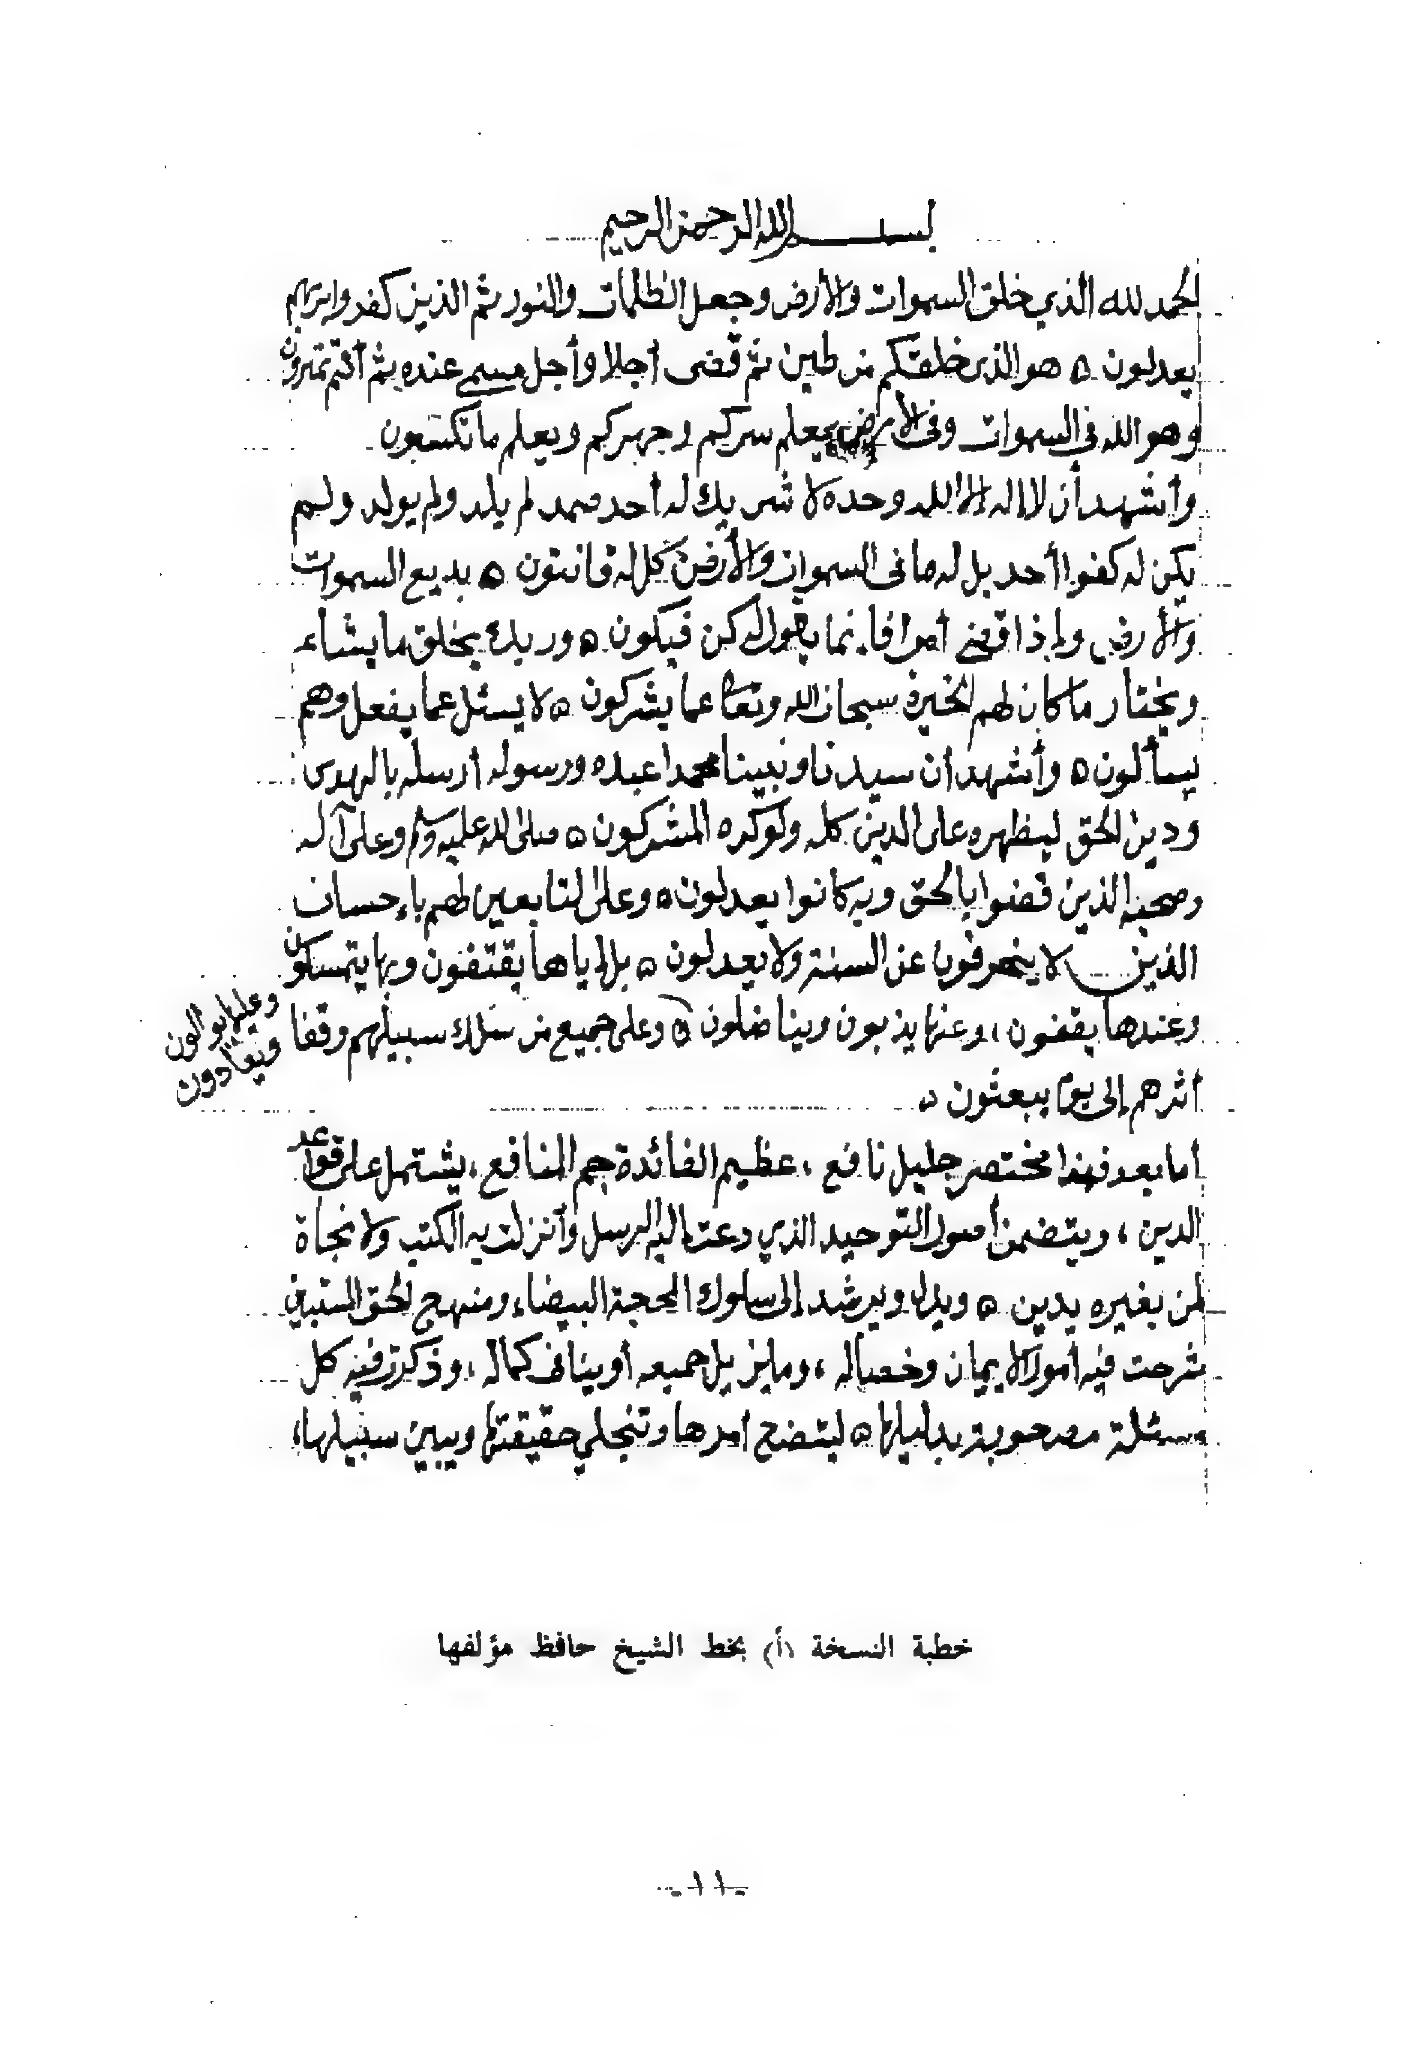 بسم الله الرحمن الرحيم
الحمد لله الذي خلق السموات والأرض وجعل الظلمات والنور ثم الذين كفروا بربهم
يعدلون ه هو الذي خلقكم من طين ثم قضى أجلا وأجل مسمى عنده ثم أنتم تمترون
وهو الله في السموات وفي الأرض يعلم سركم وجهركم ويعلم ما تكسبون
وأشهد أن لا إله إلا الله وحده لا شريك له أحد صمد لم يلد ولم يولد ولم
يكن له كفوا أحد بل له ما في السموات والأرض كل له قانتون ه بديع السموات
والأرض وإذا قضى أمرا فإنما يقول له كن فيكون ه وربك يخلق ما يشاء
ويختار ما كان لهم الخيرة سبحان الله وتعالى عما يشركون ه لا يسئل عما يفعل وهم
يسألون ه وأشهد أن سيدنا ونبينا محمدا عبده ورسوله أرسله بالهدى
ودين الحق ليظهره على الدين كله ولو كره المشركون ه صلى الله عليه وسلم وعلى آله
وصحبه الذين قضوا بالحق وبه كانوا يعدلون ه وعلى التابعين لهم بإحسان
الذين لا ينحرفون عن السنة ولا يعدلون ه بل إياها يقتفون وبها يتمسكون
وعليها يوالون
ويعادون
وعندها يقفون، وعنها يذبون ويناضلون ه وعلى جميع من سلك سبيلهم وقفا
أثرهم إلى يوم يبعثون ه
أما بعد فهذا مختصر جليل نافع، عظيم الفائدة جم المنافع، يشتمل على قواعد
الدين، ويتضمن أصول التوحيد الذي دعت إليه الرسل وأنزلت به الكتب ولا نجاة
لمن بغيره يدين ه ويدل ويرشد إلى سلوك المحجة البيضاء ومنهج الحق المستبين
شرحت فيه أمور الإيمان وخصاله، وما يزيل جميعه أو ينافي كماله، وذكرت فيه كل
مسئلة مصحوبة بدليلها ه ليتضح أمرها وتنجلي حقيقتها ويبين سبيلها،
خطبة النسخة (أ) بخط الشيخ حافظ مؤلفها
-١١-